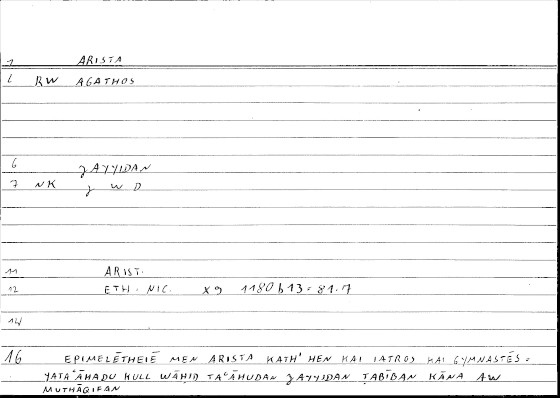 1 ARISTA
2 RW AGATHOS
6 ǧAYYIDAN
7 NK ǧ W D
11 ARIST.
12 ETH. NIC. X 9 1180 b 13 = 81.7
14
16 EPIMELĒTHEIĒ MEN ARISTA KATH' HEN KAI IATROS KAI GYMNASTĒS =
YATAʿĀHADU KULL WĀHID TAʿĀHUDAN ǧAYYIDAN ṬABĪBAN KĀNA AW
MUTHĀQIFAN